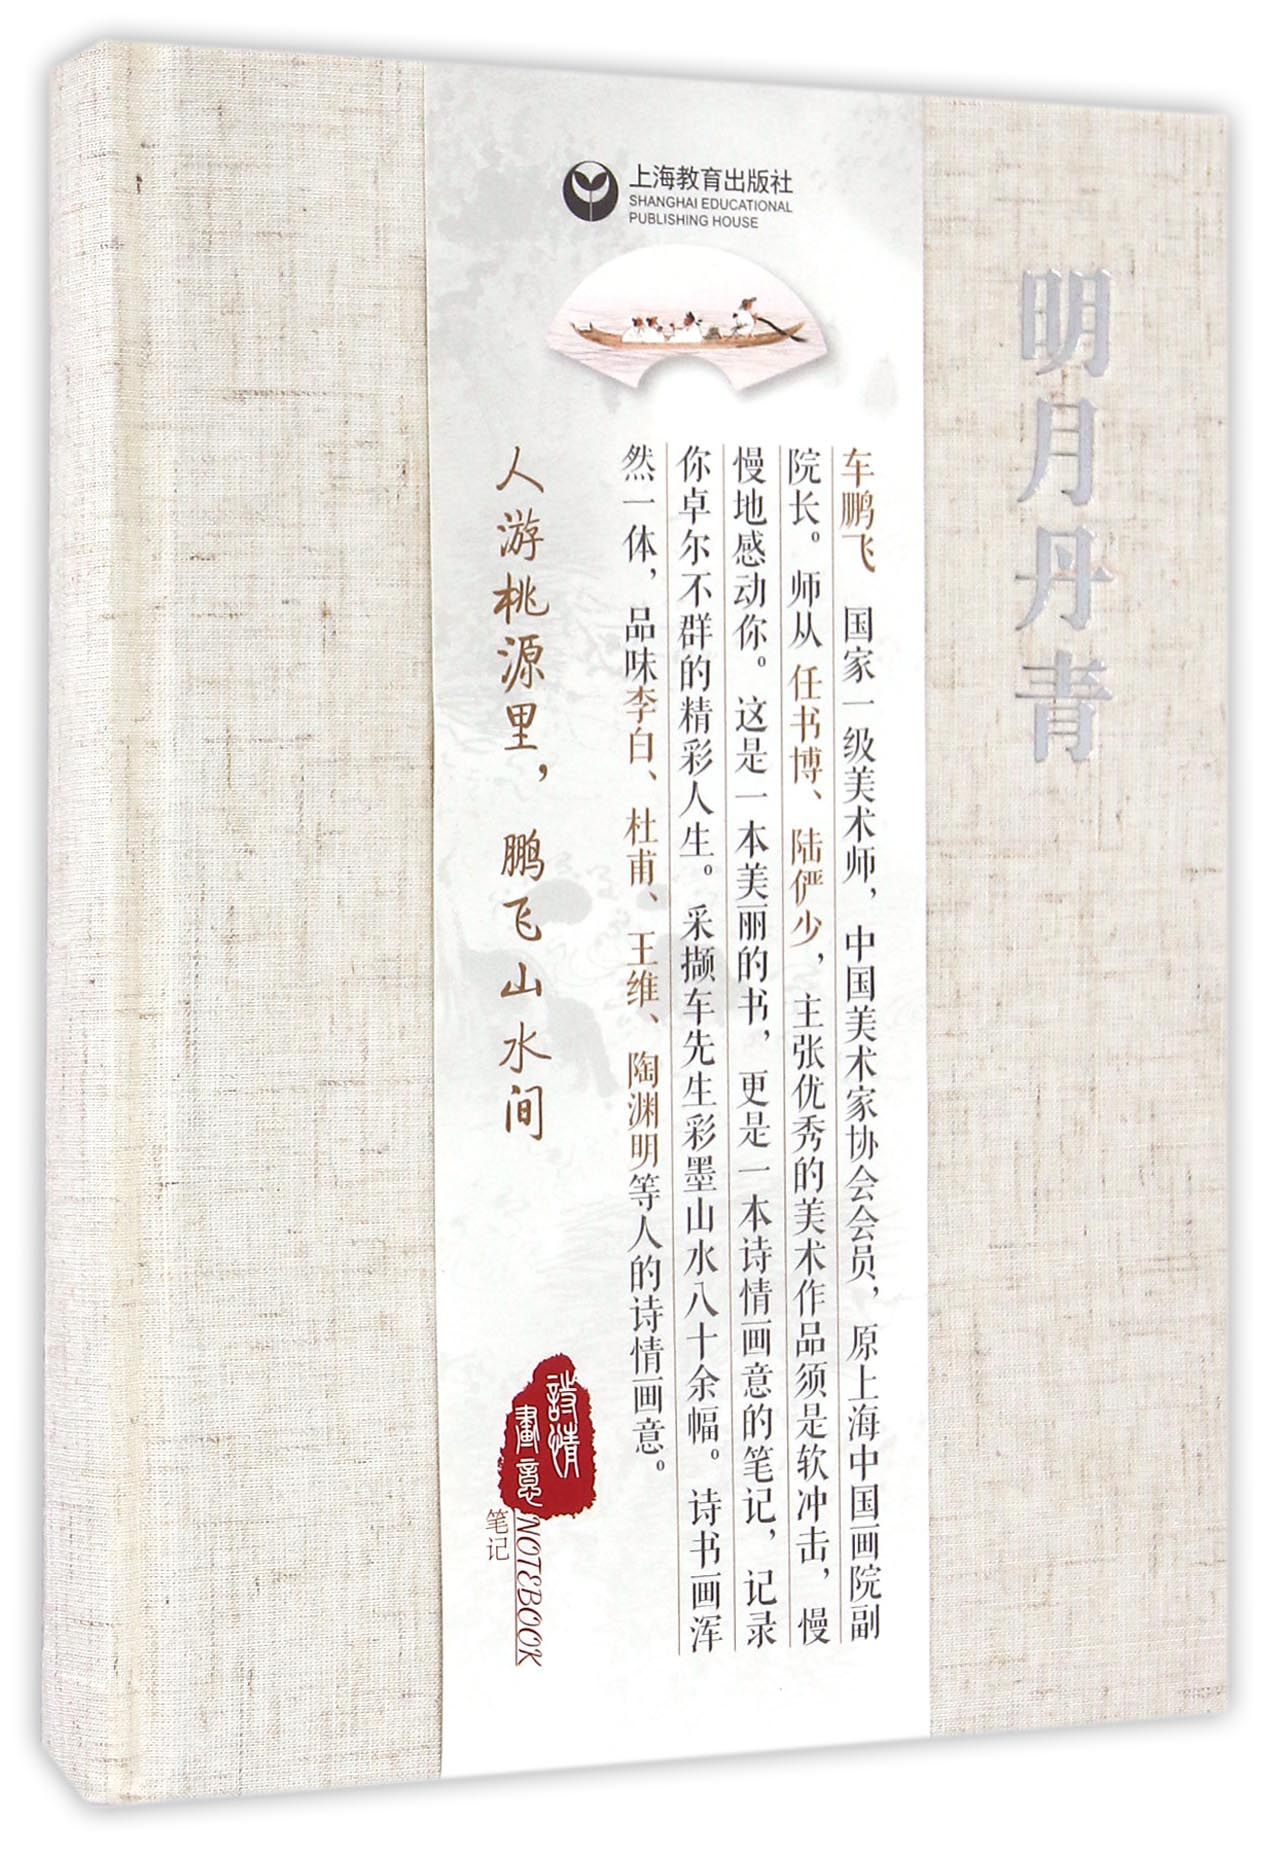 明月丹青
上海教育出版社
SHANGHAI EDUCATIONAL
PUBLISHING HOUSE
车鹏飞 国家一级美术师，中国美术家协会会员，原上海中国画院副
院长。师从任书博、陆俨少，主张优秀的美术作品须是软冲击，慢
慢地感动你。这是一本美丽的书，更是一本诗情画意的笔记，记录
你卓尔不群的精彩人生。采撷车先生彩墨山水八十余幅。诗书画浑
然一体，品味李白、杜甫、王维、陶渊明等人的诗情画意。
人游桃源里，鹏飞山水间
詩情
畫意
NOTEBOOK
笔记